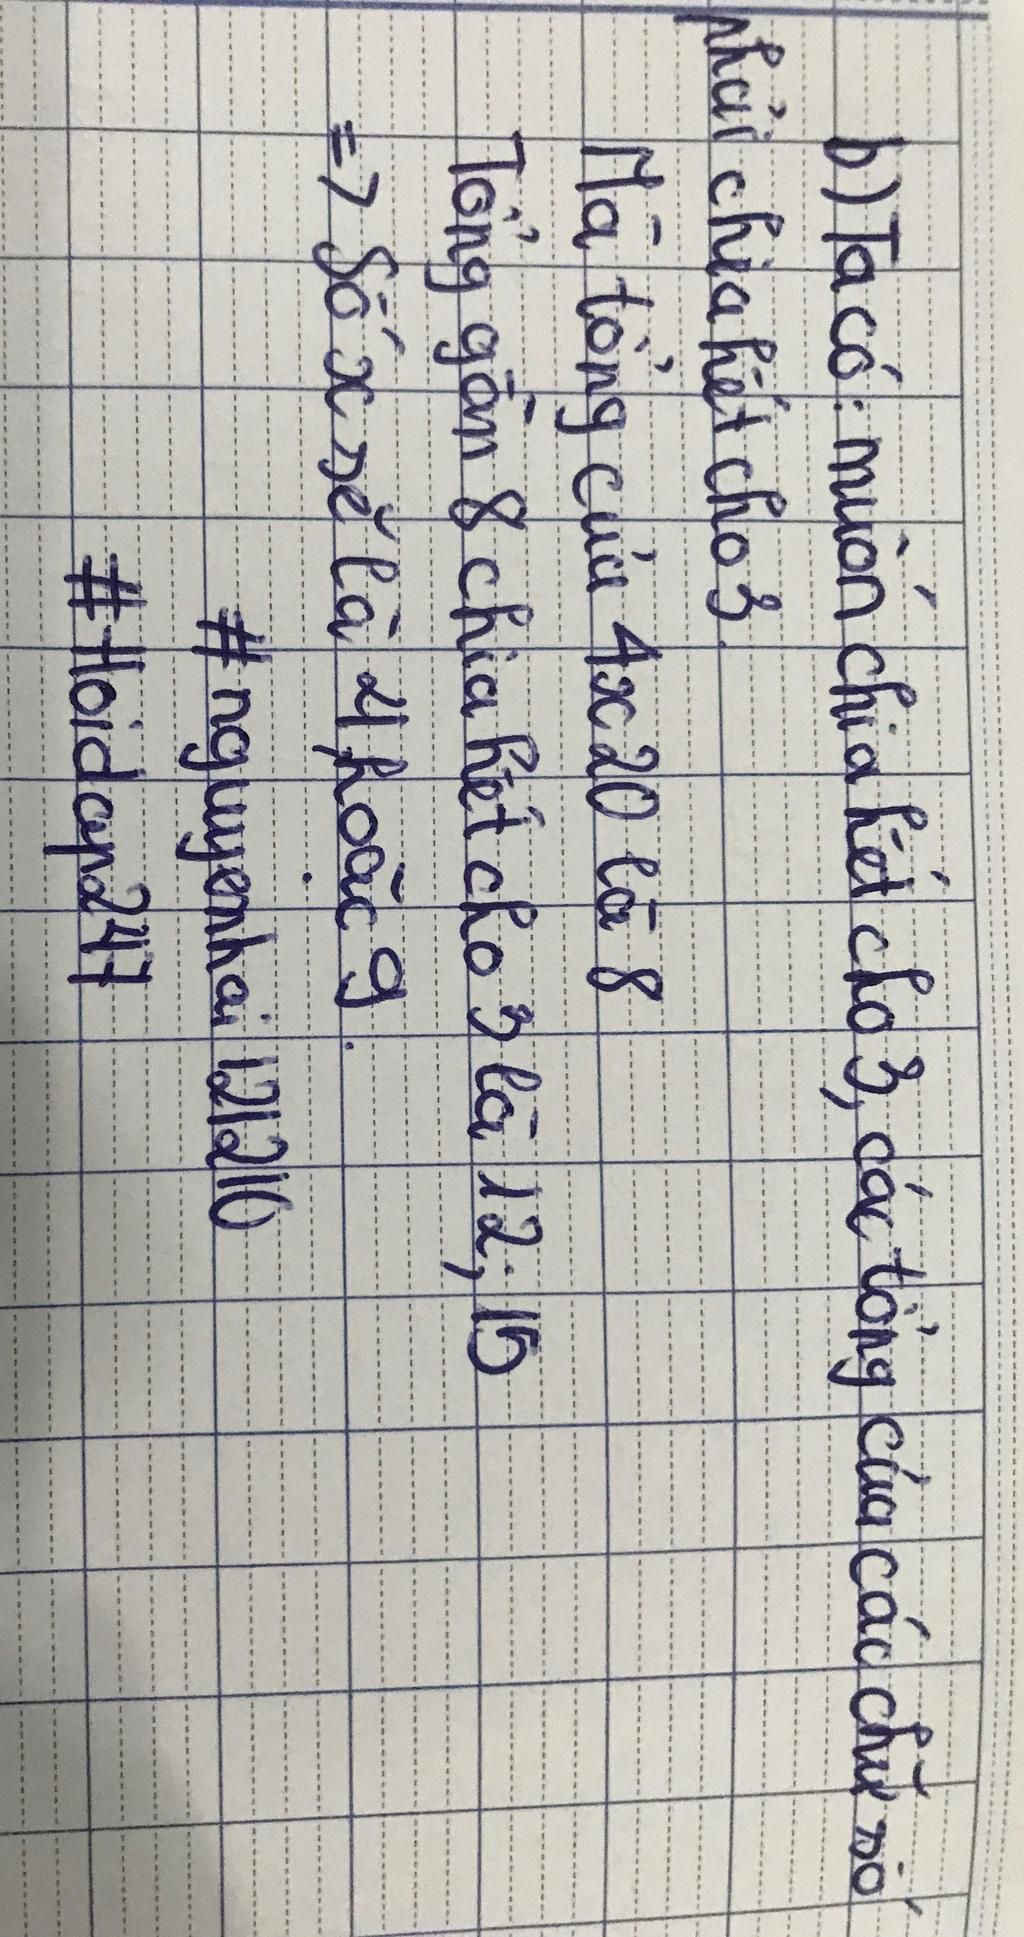 b) Ta có: muốn chia hết cho 3, các tổng của các chữ số
phải chia hết cho 3.
Mà tổng của 4x20 là 8
Tổng gần 8 chia hết cho 3 là 12; 15
=> Số x sẽ là 4, hoặc 9.
#nguyenhai121210
#Hoidap247